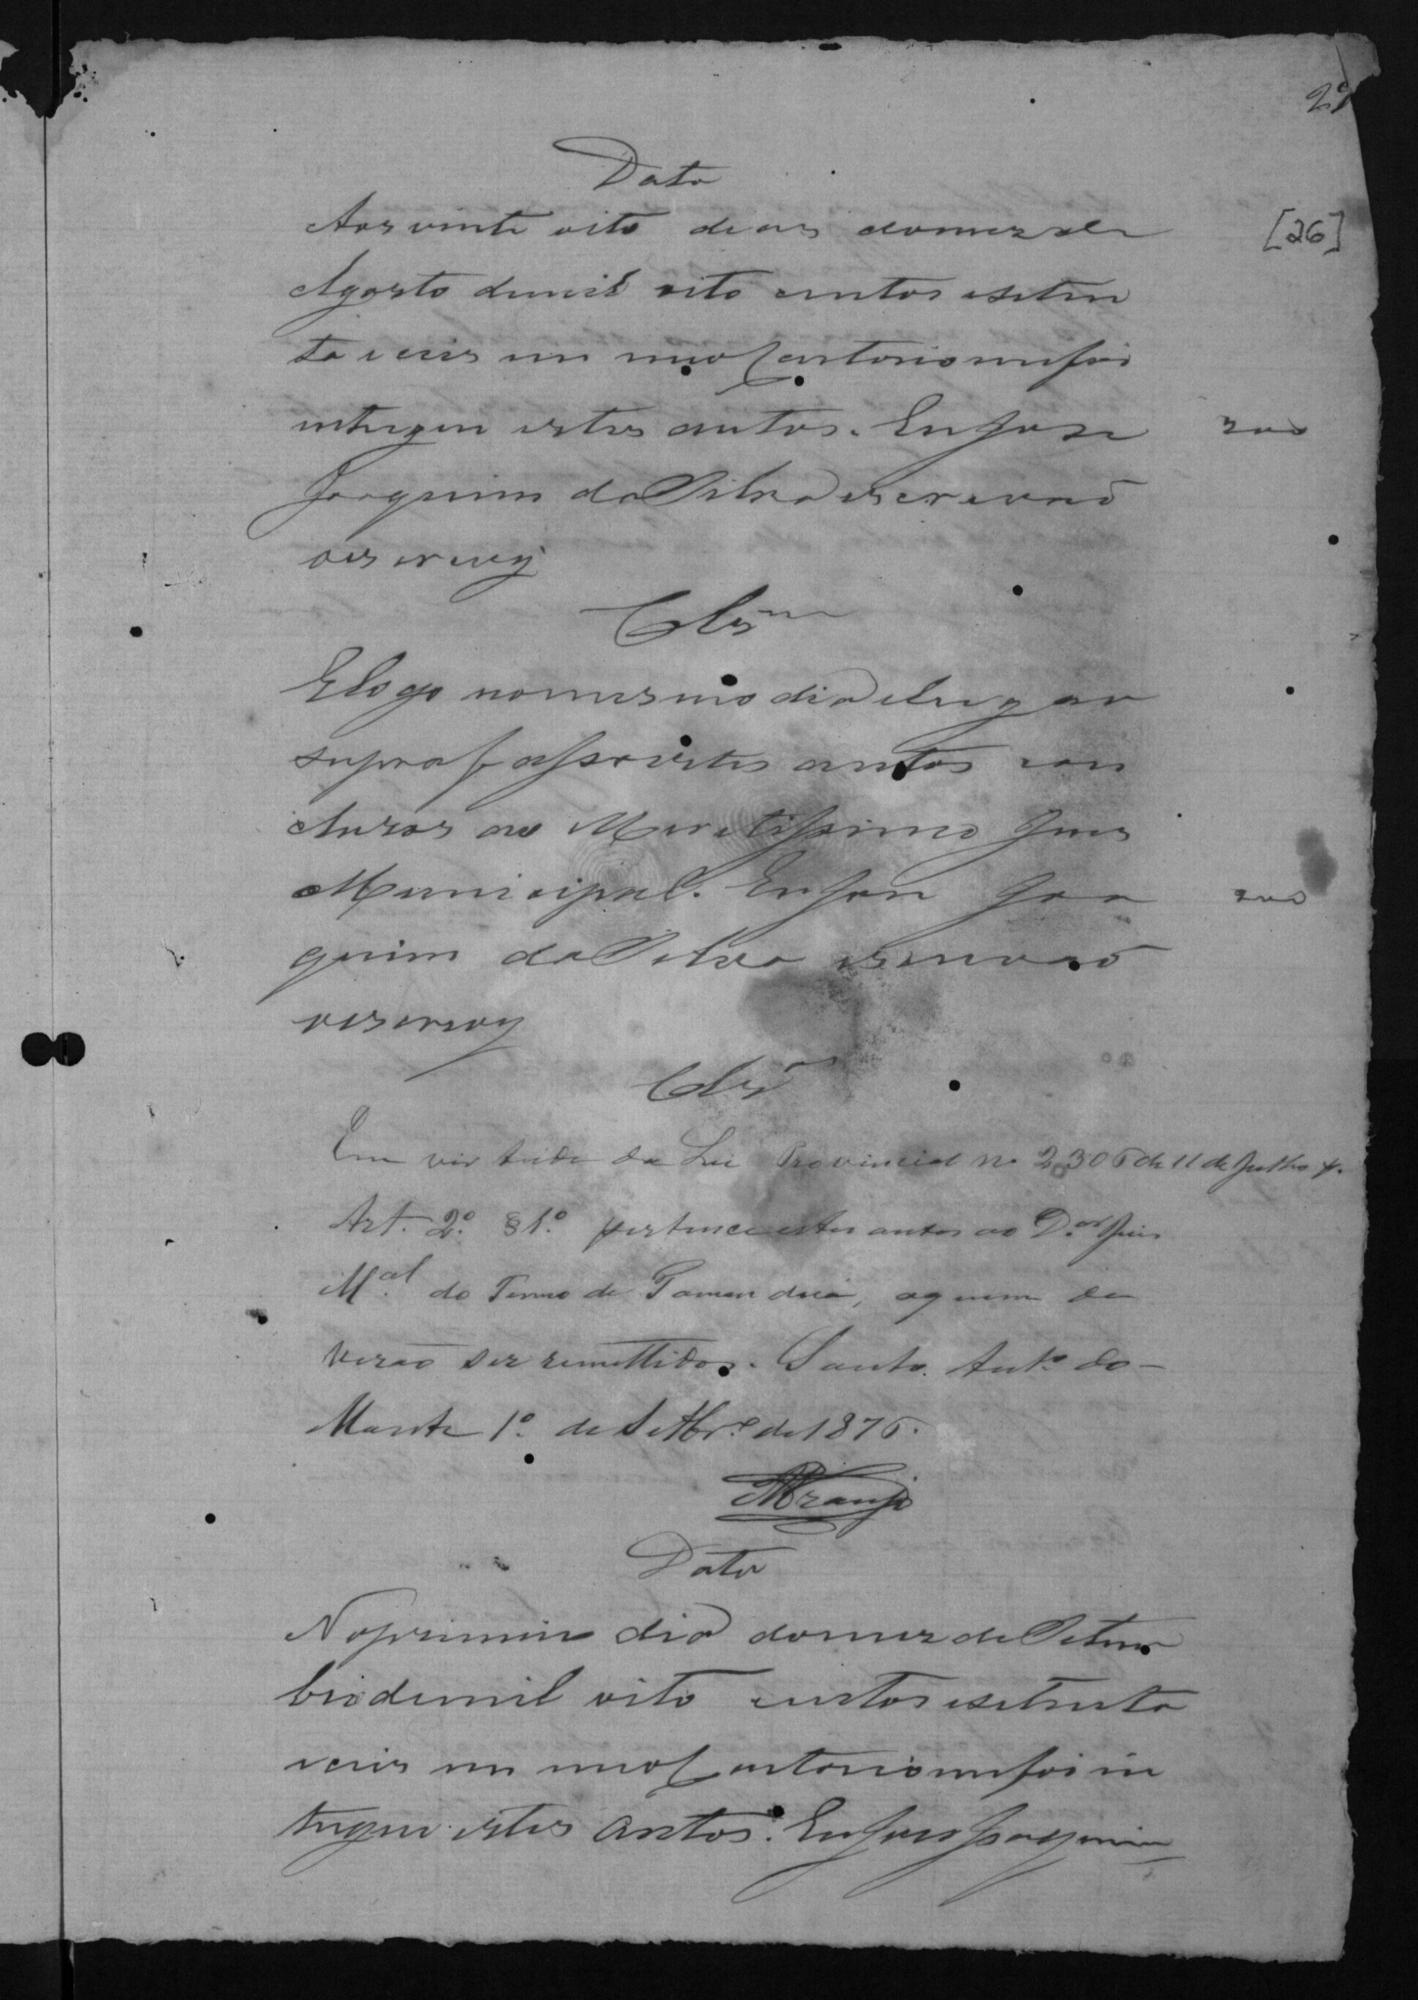 29
Data
Aos vinte oito dias domez de
[26]
Agosto demil oito centos eseten
ta eceis em meo Cartorio mefoi
entregue estes autos. Eu Jose
200
Joaquim da Silva escrevaõ
oescrevy
Clsm
Elogo nomesmo dia elugar
supra faço estes autos con
cluzos ao Meretissimo Juis
Municipal. Eu Jose Joa
200
quim da Silva escrevaõ
oescrevy
Cls
Em virtude da Lei Provincial nº 2306 de 11 de Julho
Art. 2º. § 1º. pertence estes autos ao D.or Juis
M.al do Termo de Tamanduá, aquem de
verão ser remettidos. Santo Antº do
Monte 1º. de Settbr.º de 1876.
Araujo
Data
Noprimeiro dia domez de Setem
bro demil oito centos esetenta
eceis em meo Cartorio mefoi in
tregue estes autos. Eu Jose Joaquim